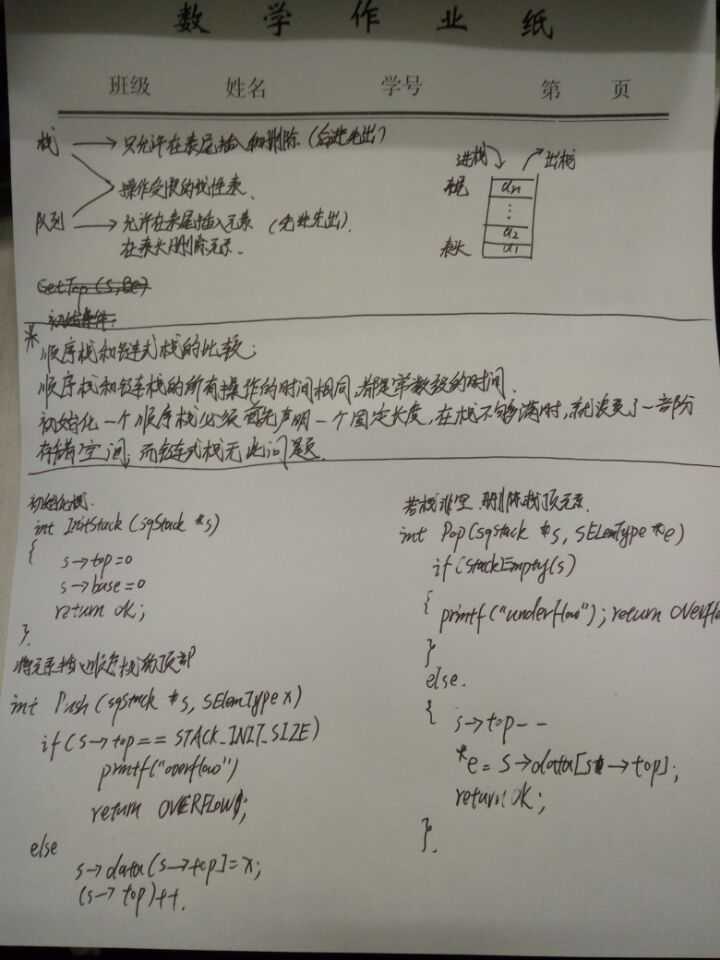 数学作业纸
班级 姓名 学号 第 页
栈 → 只允许在表尾插入和删除 (后进先出)
操作受限的线性表.
队列 → 允许在表尾插入元素 (先进先出).
在表头删除元素.
进栈 出栈
an
⋮
a2
表头 a1
GetTop(S,&e)
初始条件:
※
顺序栈和链式栈的比较;
顺序栈和链栈的所有操作的时间相同,都是常数级的时间.
初始化一个顺序栈必须首先声明一个固定长度,在栈不够满时,就浪费了一部分
存储空间;而链式栈无此问题.
初始化栈.
int InitStack(sqStack *s)
{
s→top=0
s→base=0
return ok;
}.
将元素插入顺序栈的顶部
int Push(sqStack *s, SElemType x)
if(s→top== STACK_INIT_SIZE)
printf("overflow")
return OVERFLOW;
else
s→data(s→top]=x;
(s→top)++.
若栈非空 删除栈顶元素.
int Pop(sqStack *s, SElemType *e)
if(StackEmpty(s)
{ printf("underflow"); return OVERFLO
}
else.
{ s→top--
*e = s→data[s→top];
return OK;
}.